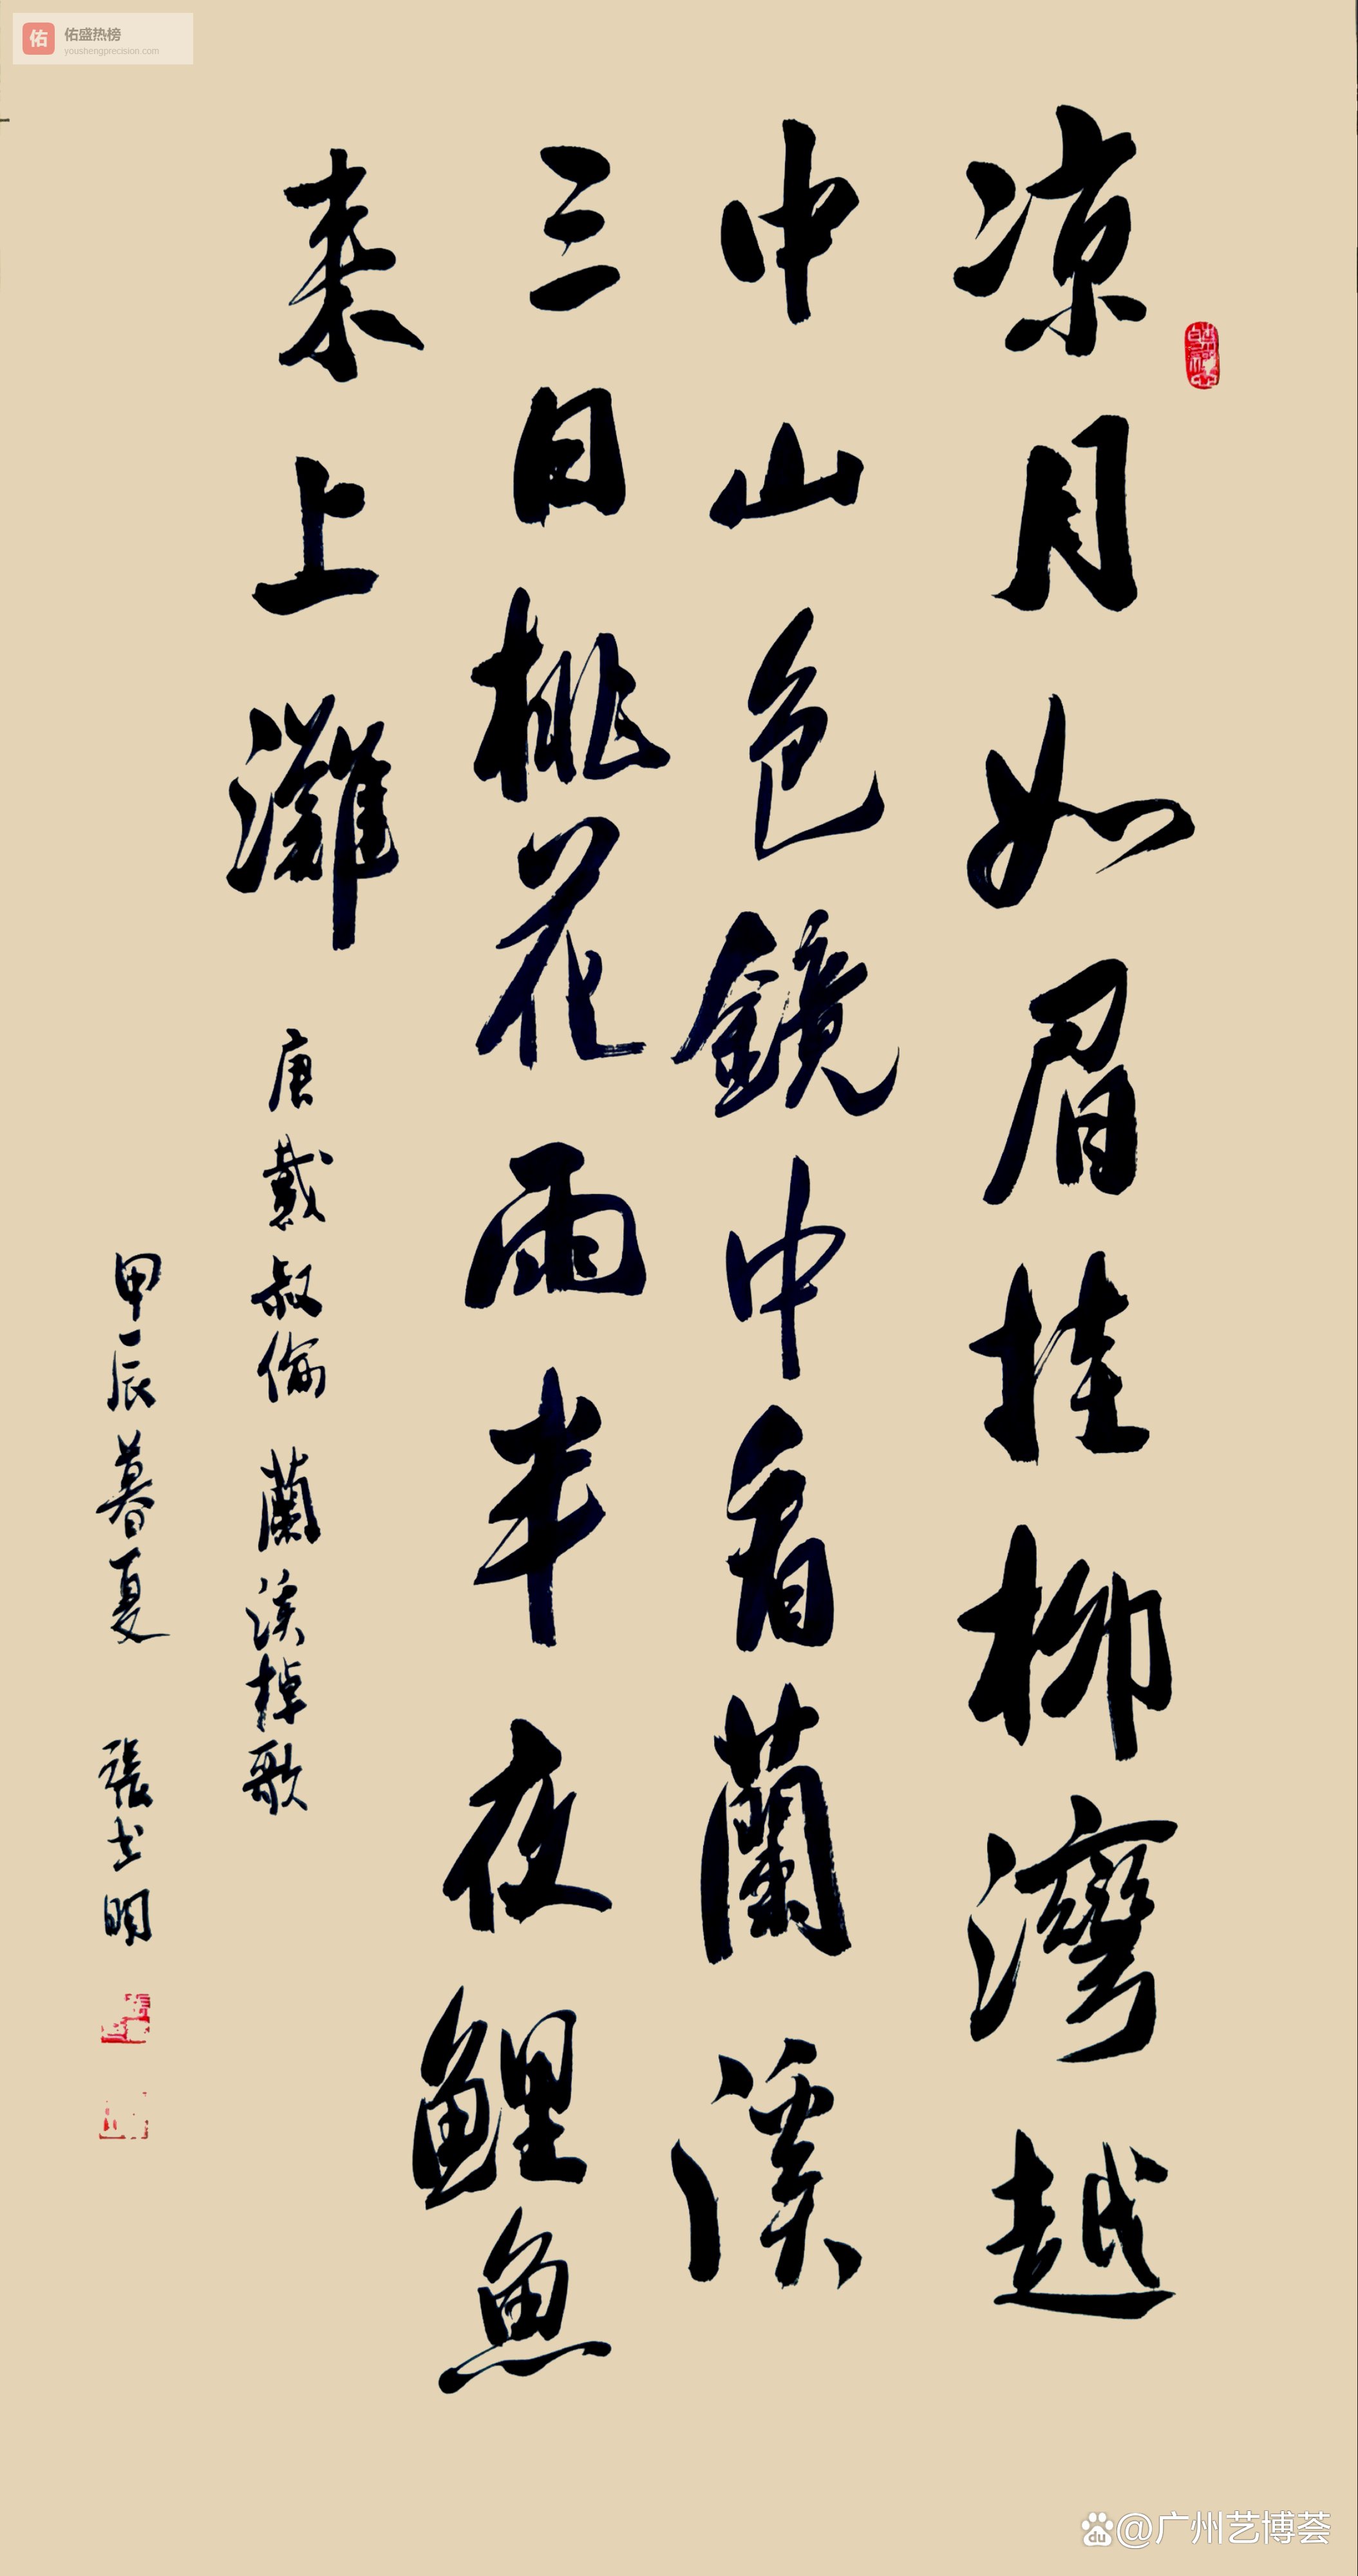 凉月如眉挂柳灣越
中山色鏡中看蘭溪
三日桃花雨半夜鯉魚
来上灘 唐戴叔倫 蘭溪棹歌
甲辰暮夏 張士明
佑 佑盛热榜
youshengprecision.com
@广州艺博荟